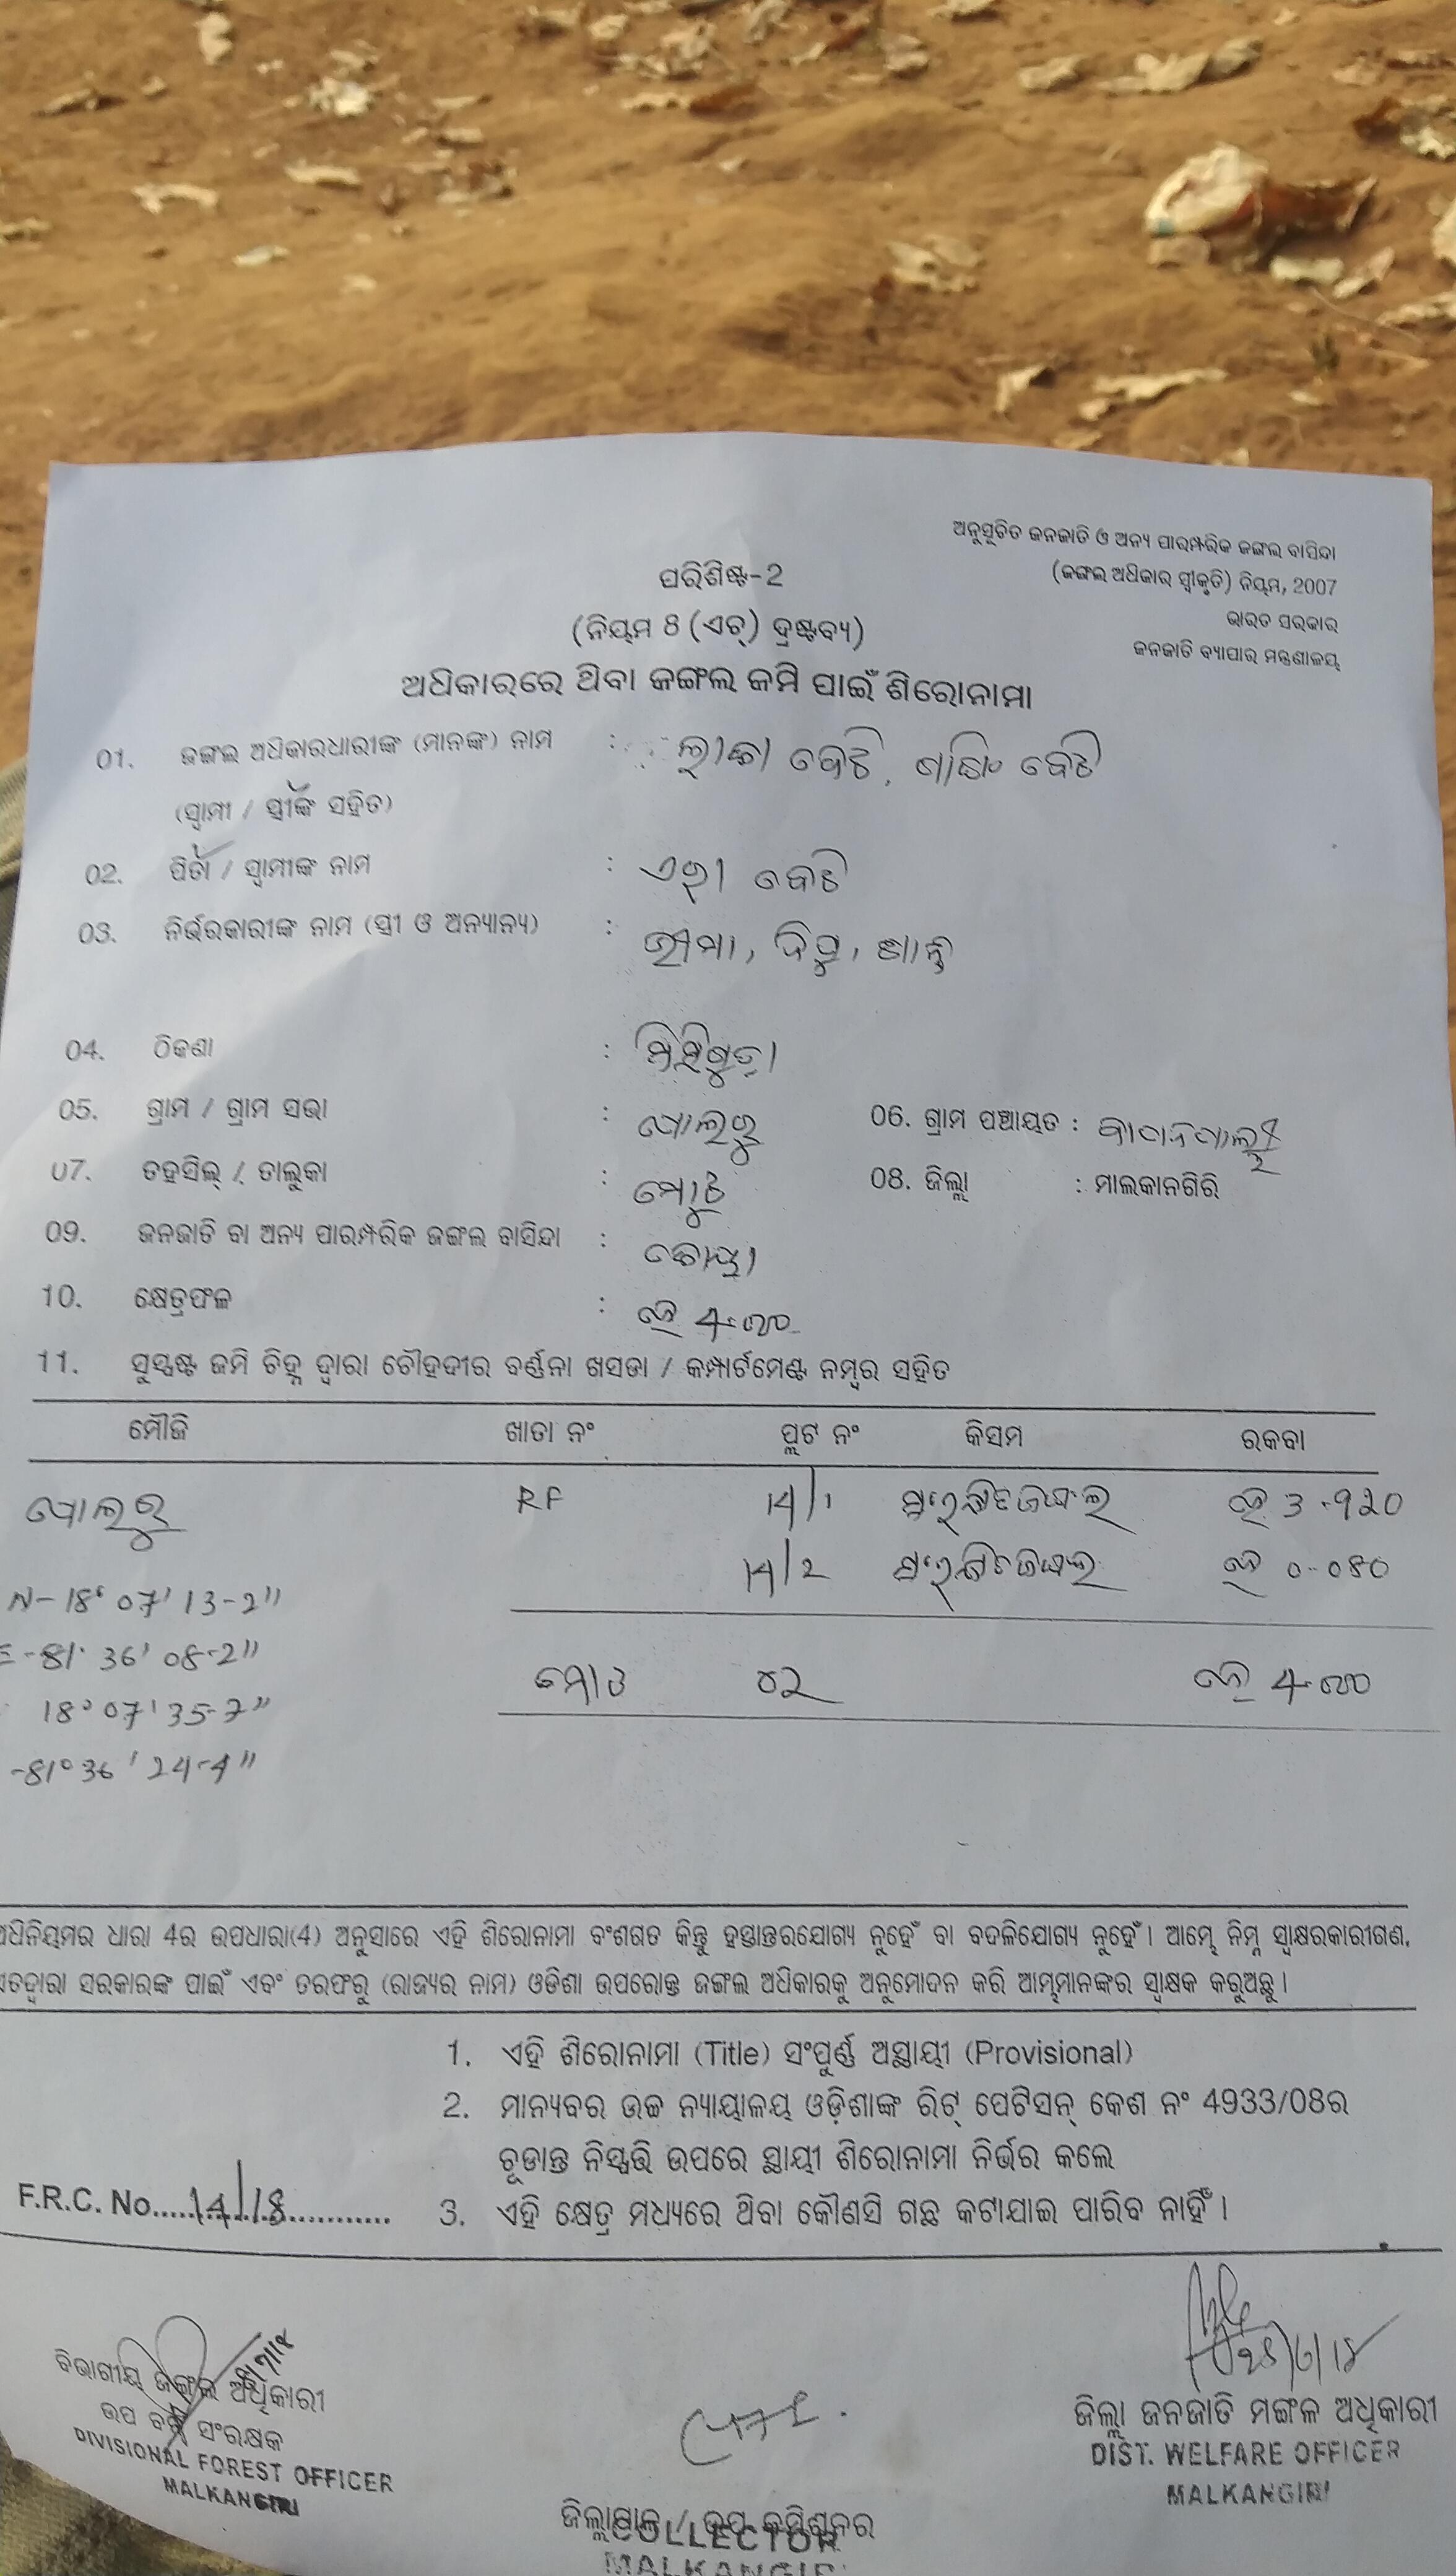 ଅନୁସୂଚିତ ଜନଜାତି ଓ ଅନ୍ୟ ପାରମ୍ପରିକ ଜଙ୍ଗଲ ବାସିନ୍ଦା
(ଜଙ୍ଗଲ ଅଧିକାର ସ୍ୱୀକୃତି) ନିୟମ, 2007
ଭାରତ ସରକାର
ଜନଜାତି ବ୍ୟାପାର ମନ୍ତ୍ରଣାଳୟ
ପରିଶିଷ୍ଟ-2
(ନିୟମ 8 (ଏଚ୍) ଦ୍ରଷ୍ଟବ୍ୟ)
ଅଧିକାରରେ ଥିବା ଜଙ୍ଗଲ ଜମି ପାଇଁ ଶିରୋନାମା
01. ଜଙ୍ଗଲ ଅଧିକାରଧାରୀଙ୍କ (ମାନଙ୍କ) ନାମ :
(ସ୍ୱାମୀ / ସ୍ତ୍ରୀଙ୍କ ସହିତ)
02. ପିତା / ସ୍ୱାମୀଙ୍କ ନାମ :
03. ନିର୍ଭରକାରୀଙ୍କ ନାମ (ସ୍ତ୍ରୀ ଓ ଅନ୍ୟାନ୍ୟ) : ଭୀମା,
04. ଠିକଣା :
05. ଗ୍ରାମ / ଗ୍ରାମ ସଭା : ପୋଲୁର 06. ଗ୍ରାମ ପଞ୍ଚାୟତ :
07. ତହସିଲ୍ / ତାଲୁକା : 08. ଜିଲ୍ଲା : ମାଲକାନଗିରି
09. ଜନଜାତି ବା ଅନ୍ୟ ପାରମ୍ପରିକ ଜଙ୍ଗଲ ବାସିନ୍ଦା : କୋୟା
10. କ୍ଷେତ୍ରଫଳ : ହେ 4.000
11. ସୁସ୍ପଷ୍ଟ ଜମି ଚିହ୍ନ ଦ୍ୱାରା ଚୌହଦୀର ବର୍ଣ୍ଣନା ଖସଡା / କମ୍ପାର୍ଟମେଣ୍ଟ ନମ୍ବର ସହିତ
ମୌଜି ଖାତା ନଂ ପ୍ଲଟ ନଂ କିସମ ରକବା
ପୋଲୁର RF 14/1 ସଂରକ୍ଷିତ ଜଙ୍ଗଲ ହେ 3.920
14/2 ସଂରକ୍ଷିତ ଜଙ୍ଗଲ ହେ 0.080
N-18° 07' 13-2"
E-81° 36' 08-2"
ମୋଟ ୦୨ ହେ 4.000
18° 07' 35-7"
-81° 36' 24-4"
ଅଧିନିୟମର ଧାରା 4ର ଉପଧାରା(4) ଅନୁସାରେ ଏହି ଶିରୋନାମା ବଂଶଗତ କିନ୍ତୁ ହସ୍ତାନ୍ତରଯୋଗ୍ୟ ନୁହେଁ ବା ବଦଳିଯୋଗ୍ୟ ନୁହେଁ। ଆମ୍ଭେ ନିମ୍ନ ସ୍ୱାକ୍ଷରକାରୀଗଣ,
ଏତଦ୍ଵାରା ସରକାରଙ୍କ ପାଇଁ ଏବଂ ତରଫରୁ (ରାଜ୍ୟର ନାମ) ଓଡିଶା ଉପରୋକ୍ତ ଜଙ୍ଗଲ ଅଧିକାରକୁ ଅନୁମୋଦନ କରି ଆମ୍ଭମାନଙ୍କର ସ୍ୱାକ୍ଷକ କରୁଅଛୁ।
1. ଏହି ଶିରୋନାମା (Title) ସଂପୂର୍ଣ୍ଣ ଅସ୍ଥାୟୀ (Provisional)
2. ମାନ୍ୟବର ଉଚ୍ଚ ନ୍ୟାୟାଳୟ ଓଡ଼ିଶାଙ୍କ ରିଟ୍ ପେଟିସନ୍ କେଶ ନଂ 4933/08ର
ଚୂଡାନ୍ତ ନିସ୍ପତ୍ତି ଉପରେ ସ୍ଥାୟୀ ଶିରୋନାମା ନିର୍ଭର କଲେ
F.R.C. No....14/18......................
3. ଏହି କ୍ଷେତ୍ର ମଧ୍ୟରେ ଥିବା କୌଣସି ଗଛ କଟାଯାଇ ପାରିବ ନାହିଁ।
ବିଭାଗୀୟ ଜଙ୍ଗଲ ଅଧିକାରୀ
ଉପ ବନ ସଂରକ୍ଷକ
DIVISIONAL FOREST OFFICER
MALKANGIRI
ଜିଲ୍ଲା ଜନଜାତି ମଙ୍ଗଳ ଅଧିକାରୀ
DIST. WELFARE OFFICER
MALKANGIRI
ଜିଲ୍ଲାପାଳ / ଉପ କମିଶନର
COLLECTOR
MALKANGIRI